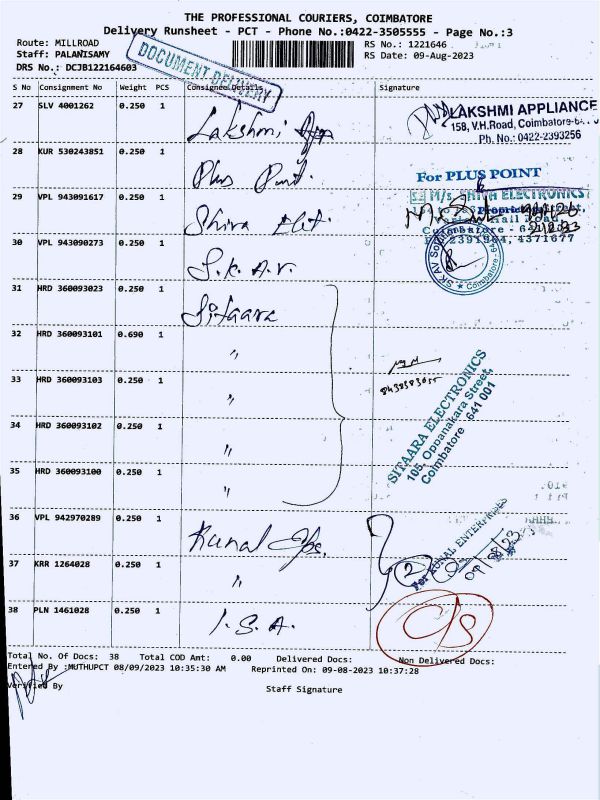 THE PROFESSIONAL COURIERS, COIMBATORE
Delivery Runsheet - PCT - Phone No.:0422-3505555 - Page No.:3
Route: MILLROAD
RS No.: 1221646
Staff: PALANISAMY
RS Date: 09-Aug-2023
DRS No.: DCJB122164603
DOCUMENT DELIVERY
S No Consignment No Weight PCS Consignee Details Signature
27 SLV 4001262 0.250 1 Lakshmi App
LAKSHMI APPLIANCE
158, V.H.Road, Coimbatore-6
Ph. No.: 0422-2393256
28 KUR 530243851 0.250 1 Plus Point.
For PLUS POINT
29 VPL 943091617 0.250 1 Shiva Elet.
ELECTRONICS
Coimbatore - 
2391964, 4371677
30 VPL 940090273 0.250 1 S.K.A.V.
Coimbatore
31 HRD 360093023 0.250 1 Sitaara
32 HRD 360093101 0.690 1 "
33 HRD 360093103 0.250 1 "
SITAARA ELECTRONICS
105, Oppanakara Street,
Coimbatore - 641 001
34 HRD 360093102 0.250 1 "
35 HRD 360093100 0.250 1 "
36 VPL 942970289 0.250 1 Kunal Eps.
For KUNAL ENTERPRISES
37 KRR 1264028 0.250 1 "
2
38 PLN 1461028 0.250 1 I.S.A.
Total No. Of Docs: 38 Total COD Amt: 0.00 Delivered Docs: Non Delivered Docs:
Entered By :MUTHUPCT 08/09/2023 10:35:30 AM Reprinted On: 09-08-2023 10:37:28
Verified By
Staff Signature